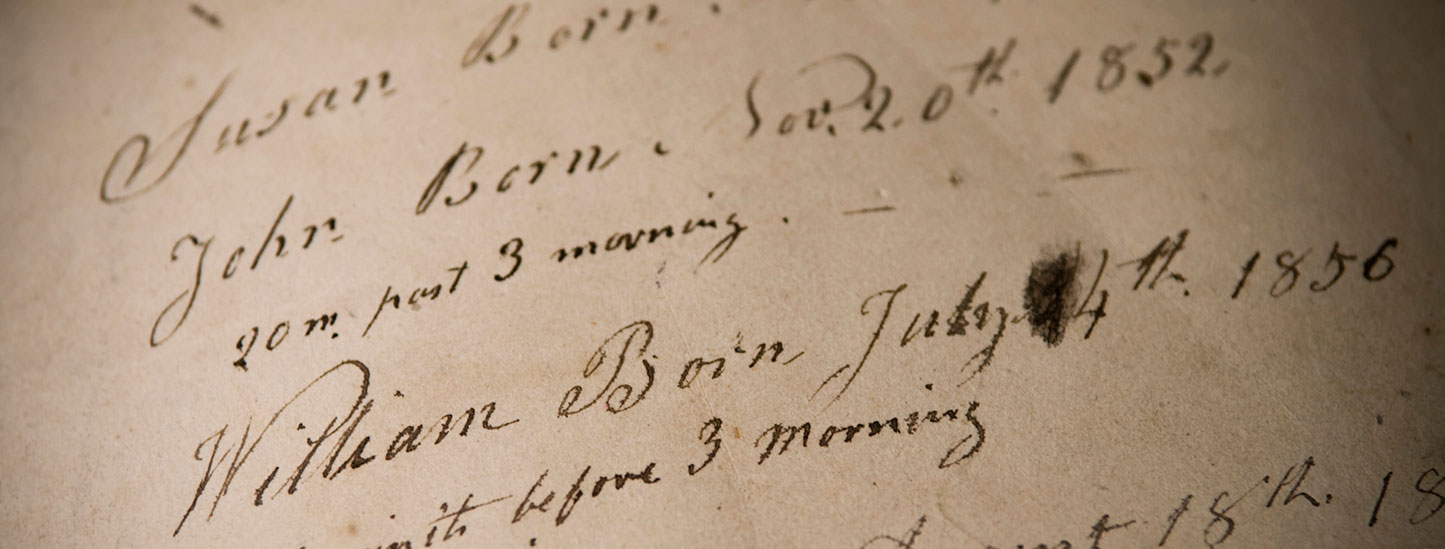 Susan Born
John Born. Nov. 20th 1852.
20 m. past 3 morning. —
William Born July 4th. 1856
before 3 morning
18th. 18